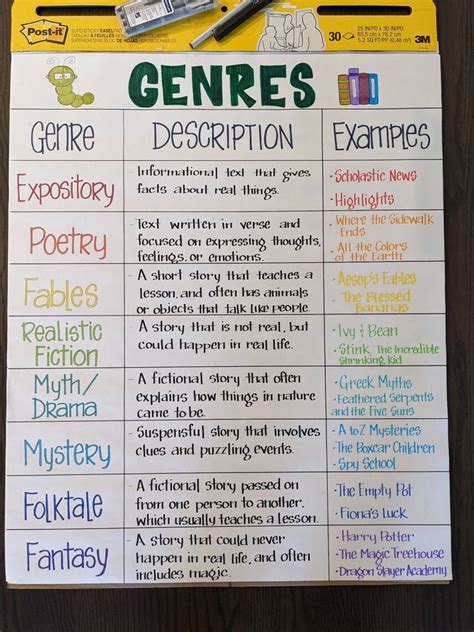 Post-it
SUPERSTICKY EASEL PAD
25 IN/PO x 30 IN/PO
63,5 cm x 76,2 cm
5.2 SQ FT/PI² (0,48 m²)
30
3M
GENRES
Genre
DESCRIPTION
Examples
Expository
- Informational text that gives
facts about real things.
• Scholastic News
• Highlights
Poetry
- Text written in verse and
focused on expressing thoughts,
feelings, or emotions.
• Where the Sidewalk
Ends
• All the Colors
of the Earth
Fables
- A short story that teaches a
lesson, and often has animals
or objects that talk like people.
• Aesop's Fables
• The Blessed
Bananas
Realistic
Fiction
- A story that is not real, but
could happen in real life.
• Ivy & Bean
• Stink The Incredible
Shrinking Kid
Myth/
Drama
- A fictional story that often
explains how things in nature
came to be.
• Greek Myths
• Feathered Serpents
and the Five Suns
Mystery
- Suspensful story that involves
clues and puzzling events.
• A to Z Mysteries
• The Boxcar Children
• Spy School
Folktale
- A fictional story passed on
from one person to another,
which usually teaches a lesson.
• The Empty Pot
• Fiona's Luck
Fantasy
- A story that could never
happen in real life, and often
includes magic.
• Harry Potter
• The Magic Treehouse
• Dragon Slayer Academy